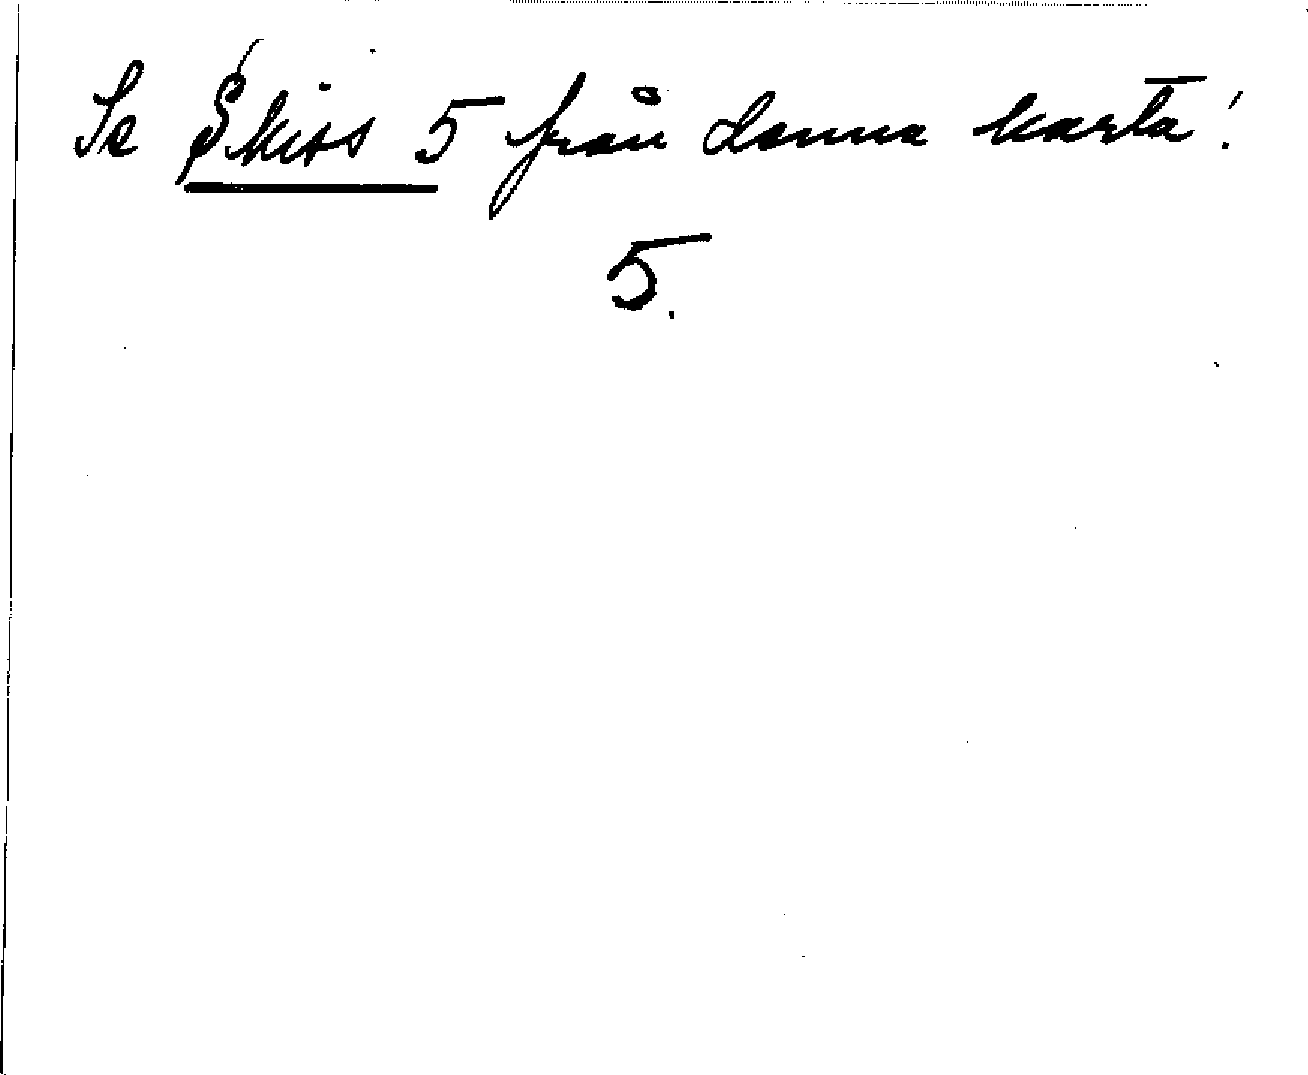 Se Skiss 5 från denna karta!
5.